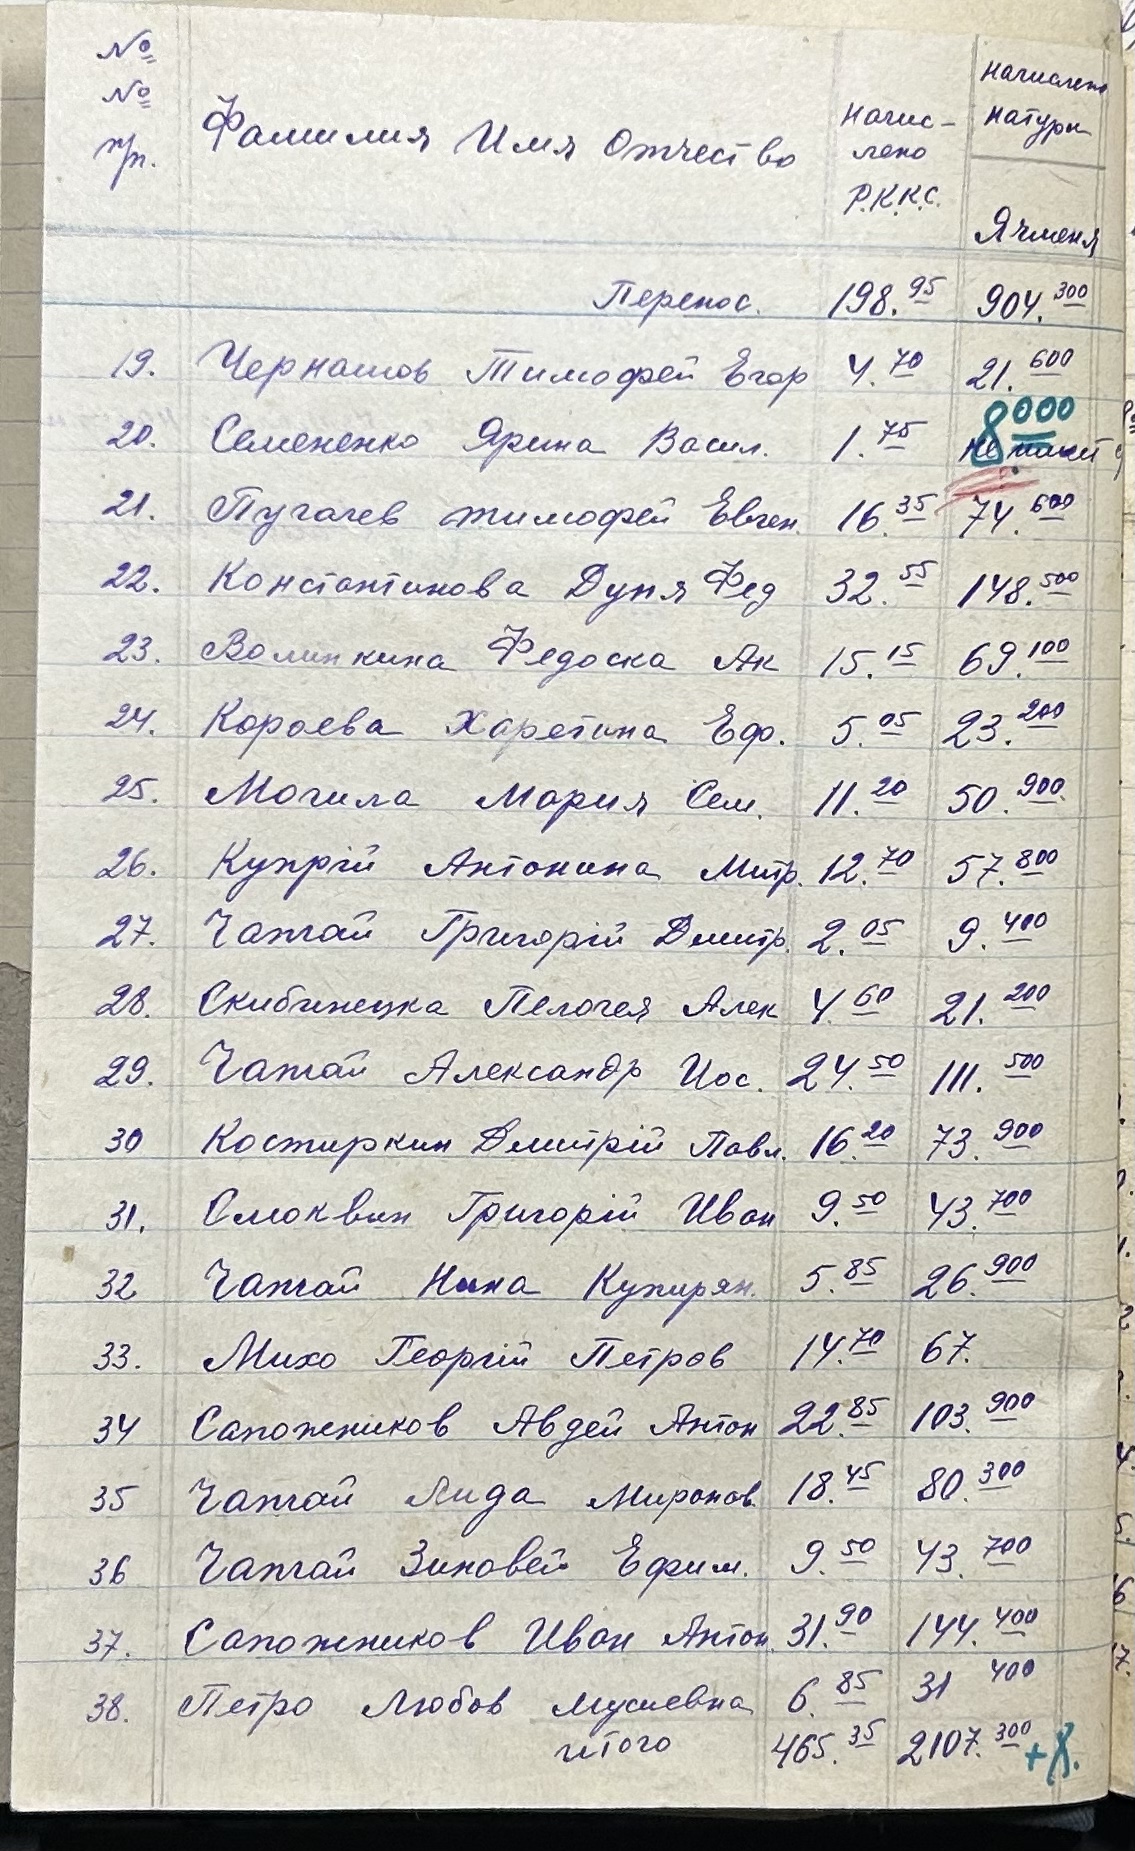 №
№
пп.
Фамилия Имя Отчество
Начис-
лено
Р.К.К.С.
Начислено
натури
Ячменя
Перенос. 198.95 904.300
19. Чернашов Тимофей Егор 4.70 21.600
20. Семененко Ярина Васил. 1.75 8000
21. Пугачев Тимофей Евген. 16.35 74.600
22. Константинова Дуня Фед 32.55 148.500
23. Волинкина Федоска Ак 15.15 69.100
24. Короева Харетина Еф. 5.05 23.200
25. Могила Мария Сем. 11.20 50.900
26. Купрій Антонина Митр. 12.70 57.800
27. Чапгай Григорій Дмитр. 2.05 9.400
28. Скибинецка Пелагея Алек 4.60 21.200
29. Чапгай Александр Иос. 24.50 111.500
30 Костиркин Дмитрій Павл. 16.20 73.900
31. Смоквин Григорій Иван 9.50 43.700
32 Чапгай Нина Куприян. 5.85 26.900
33. Михо Георгій Петров 14.70 67.
34 Сапожников Авдей Антон 22.85 103.900
35 Чапгай Лида Миронов. 18.45 80.300
36 Чапгай Зиновей Ефим. 9.50 43.700
37. Сапожников Иван Антон. 31.90 144.400
38. Петро Любов Мусиевна 6.85 31 400
итого 465.35 2107.300 +8.